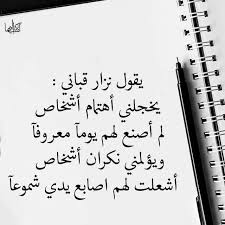 يقول نزار قباني :
يخجلني أهتمام أشخاص
لم أصنع لهم يومآ معروفآ
ويؤلمني نكران أشخاص
أشعلت لهم اصابع يدي شموعآ